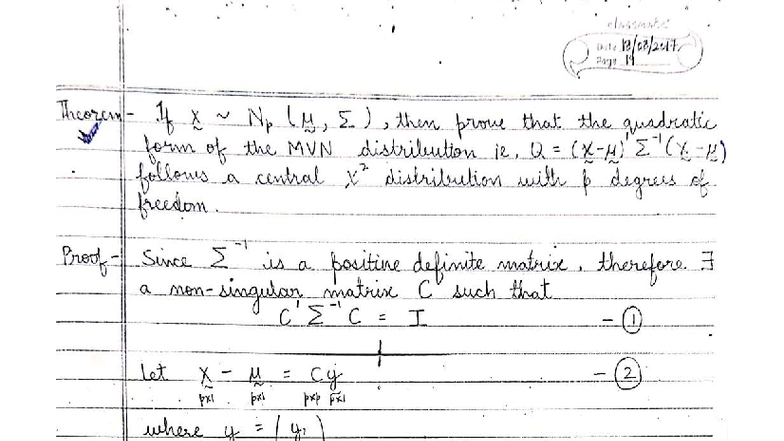 classmate
Date 18/08/2017
Page 19
Theorem - If x ~ Np (μ, Σ), then prove that the quadratic
form of the MVN distribution ie, Q = (x-μ)' Σ⁻¹ (x-μ)
follows a central χ² distribution with p degrees of
freedom.
Proof - Since Σ⁻¹ is a positive definite matrix, therefore ∃
a non-singular matrix C such that
C' Σ⁻¹ C = I - ①
Let x - μ = Cy - ②
px1 px1 pxp px1
where y = (y₁)